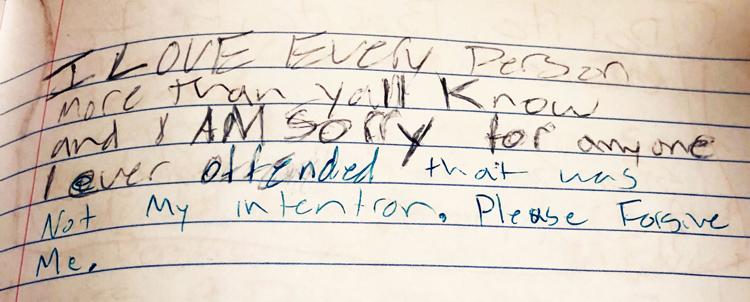 I LOVE Every Person
More than yall Know
and I AM Sorry for anyone
I ever offended that was
Not My intention. Please Forgive
Me.